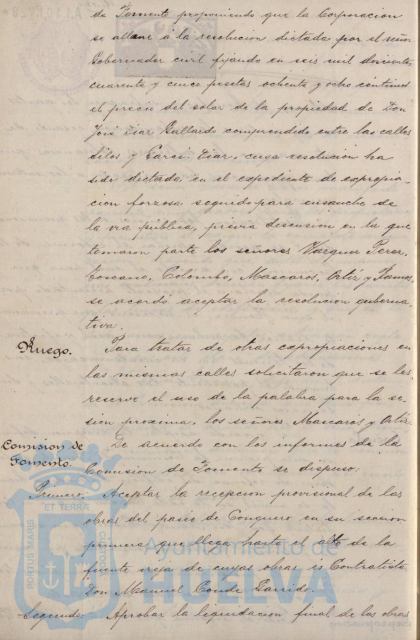 de Fomento proponiendo que la Corporacion
se allane á la resolucion dictada por el señor
Gobernador civil fijando en seis mil doscientas
cuarenta y cinco pesetas ochenta y ocho centimos
el precio del solar de la propiedad de Don
José Diaz Gallardo comprendido entre las calles
Silos y Garci-Diaz, cuya resolucion ha
sido dictada en el expediente de expropia-
cion forzosa seguido para ensanche de
la via pública, previa discusion en la que
tomaron parte los señores Vazquez Perez,
Toscano, Colombo, Mascarós, Ortiz y Llamas,
se acordó aceptar la resolucion guberna-
tiva.
Ruego.
Para tratar de otras expropiaciones en
las mismas calles solicitaron que se les
reserve el uso de la palabra para la se-
sion proxima, los señores Mascarós y Ortiz.
Comision de
Fomento.
De acuerdo con los informes de la
Comision de Fomento se dispuso:
Primero. Aceptar la recepcion provisional de las
obras del paseo de Conquero en su seccion
primera que llega hasta el alto de la
fuente vieja de cuyas obras es Contratista
Don Manuel Conde Garrido.
Segundo. Aprobar la liquidacion final de las obras
PORTUS MARIS
ET TERRÆ
Ayuntamiento de
HUELVA